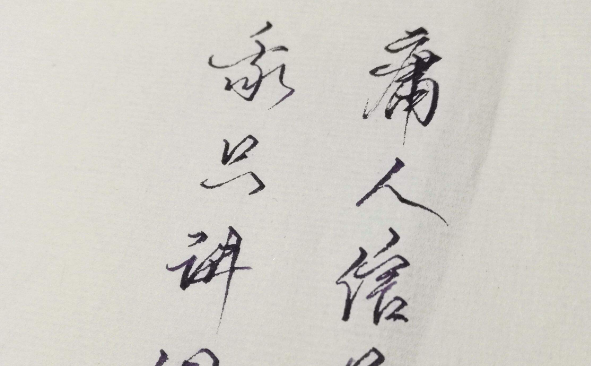 庸人信
我只讲